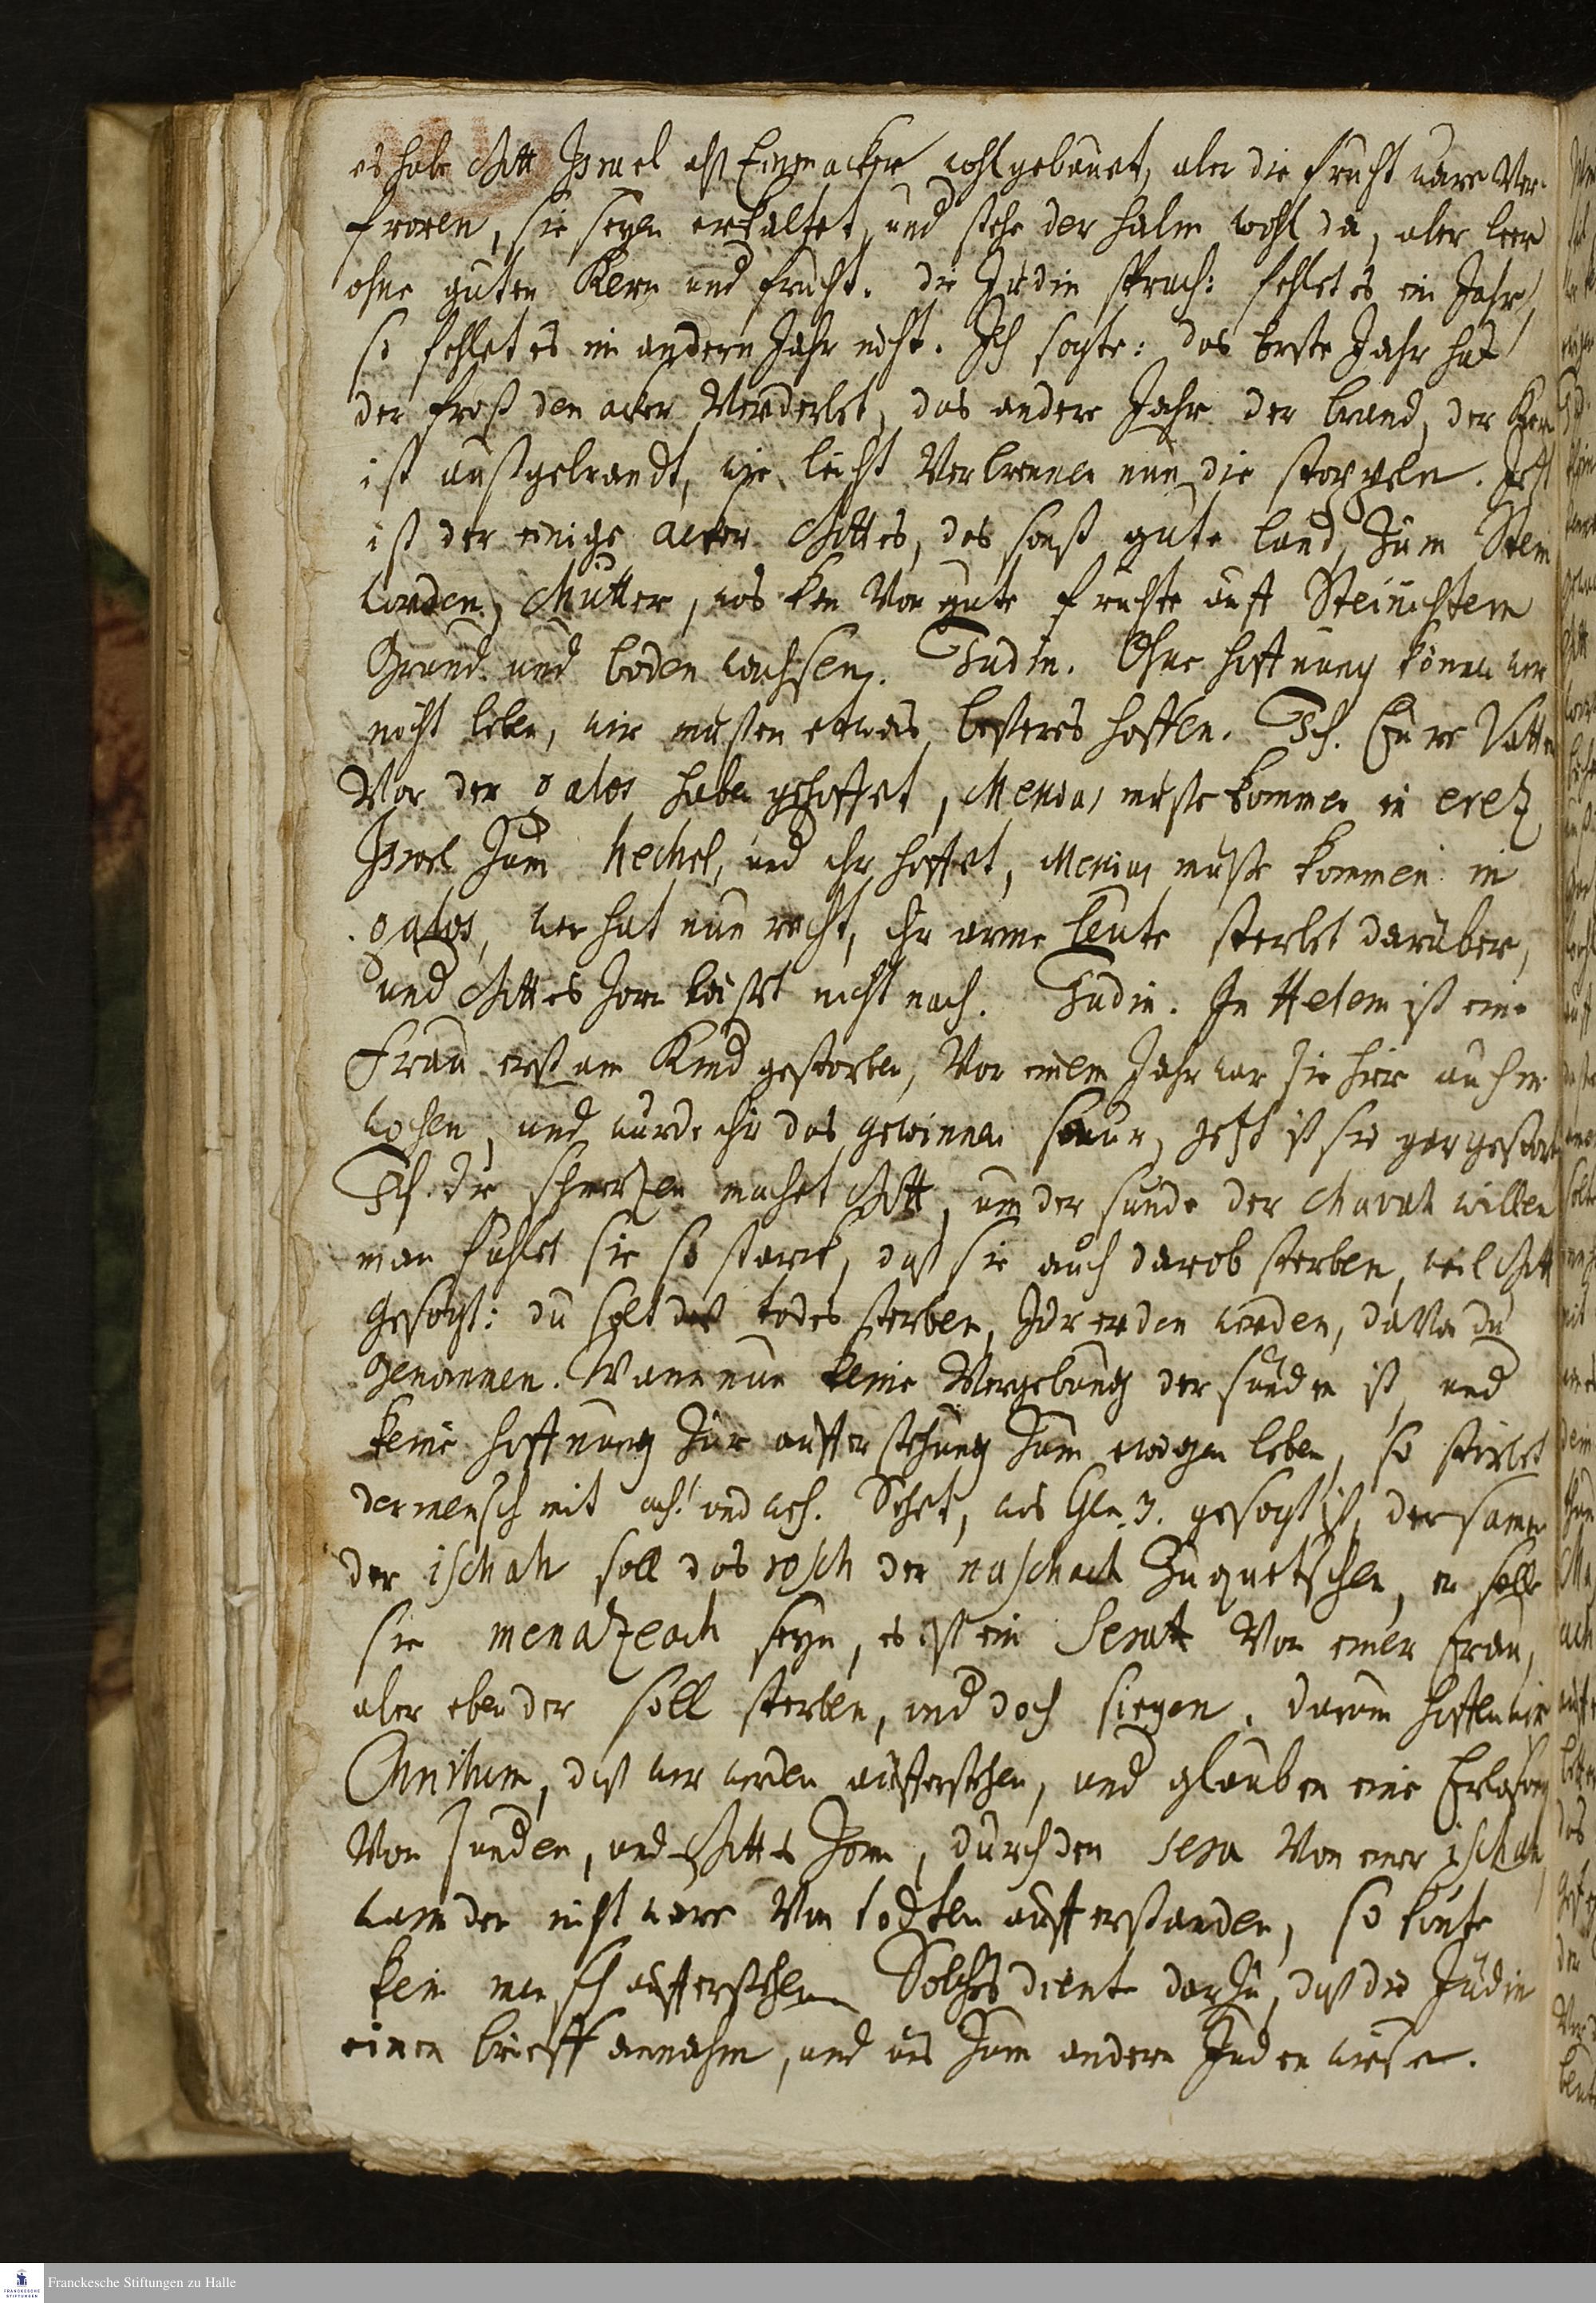 es habe Gott Israel als Einen acker wohl gebauet, aber die frucht ware ver-
froren, sie seyen erkaltet, und stehe der halm wohl da, aber leer
ohne guten Kern und frucht. die Jüdin sprach: fehlet es ein Jahr,
so fehlet es im andern Jahr nicht. Ich sagte: das erste Jahr hat
der frost den acker verderbet, das andere Jahr der brand, der Kern
ist außgebrandt, wie leicht verbrennen nun die stoppeln. Jetzt
ist der einige acker Gottes, das sonst gute land, zum Stein
worden, Mutter, was kan von gute fruchte auff Steinichtem
Grund und boden wachsen. Jüdin. Ohne hoffnung können wir
nicht leben, wir müssen etwas besseres hoffen. Ich. Eure Vätter
vor der galos haben gehoffet, Messias müsse kommen in eretz
Israel zum hechel, und ihr hoffet, Messias müsse kommen in
galos, wer hat nun recht, ihr arme leute sterbet darüber,
und Gottes Zorn lässet nicht nach. Jüdin. In Hetem ist eine
Frau erst am Kind gestorben, vor einem Jahr war sie hier auch in
wochen, und wurde ihr das gewinnen sauer, jetzt ist sie gar gestorben
Ich. Die schmertzen machet Gott, um der sünde der Chavah willen
man fühlet sie so starck, daß sie auch darob sterben, weil Gott
Gesagt: du solt des todes sterben, Zur erden werden, davon du
genommen. Wann nun keine Vergebung der sünden ist, und
keine hoffnung zur aufferstehung zum ewigen leben, so stirbet
der mensch mit ach! und weh. Sehet, was Gen. 3. gesagt ist, der samen
der ischah soll das rosch der naschach Zuquetschen, er soll
sie menatzeach seyn, es ist ein Serah von einer Frau,
aber eben der soll sterben, und doch siegen. darum hoffen wir
Christum, daß wir werden aufferstehen, und glauben eine Erlösung
von sünden, und Gottes Zorn, durch den sera von einer ischah,
wann der nicht ware von todten aufferstanden, so könte
kein mensch aufferstehen. Solches diente darzu, daß die Jüdin
einen brieff annahm, und uns zum andern Juden wiese.
Franckesche Stiftungen zu Halle